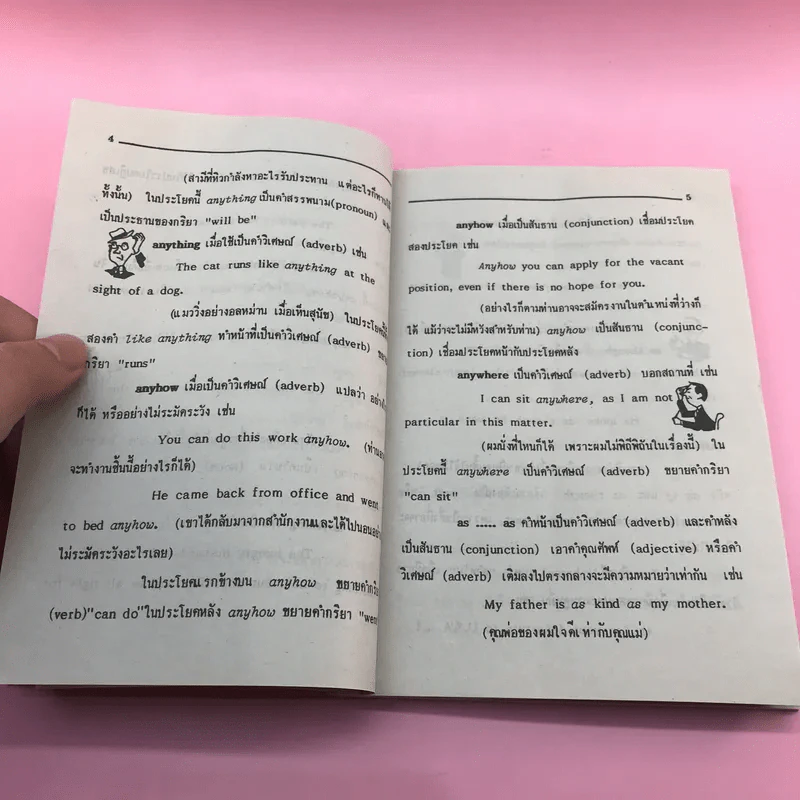 4
(สามีที่หิวกำลังหาอะไรรับประทาน แต่อะไรก็
ทั้งนั้น) ในประโยคนี้ anything เป็นคำสรรพนาม(pronoun)
เป็นประธานของกริยา "will be"
anything เมื่อใช้เป็นคำวิเศษณ์ (adverb) เช่น
The cat runs like anything at the
sight of a dog.
(แมววิ่งอย่างอลหม่าน เมื่อเห็นสุนัข) ในประโยคนี้
สองคำ like anything ทำหน้าที่เป็นคำวิเศษณ์ (adverb)
กริยา "runs"
anyhow เมื่อเป็นคำวิเศษณ์ (adverb) แปลว่า
ก็ได้ หรืออย่างไม่ระมัดระวัง เช่น
You can do this work anyhow.
จะทำงานชิ้นนี้อย่างไรก็ได้)
He came back from office and went
to bed anyhow. (เขาได้กลับมาจากสำนักงานและได้ไปนอนอย่าง
ไม่ระมัดระวังอะไรเลย)
ในประโยคแรกข้างบน anyhow ขยายคำกริยา
(verb)"can do"ในประโยคหลัง anyhow ขยายคำกริยา "went
5
anyhow เมื่อเป็นสันธาน (conjunction) เชื่อมประโยค
สองประโยค เช่น
Anyhow you can apply for the vacant
position, even if there is no hope for you.
(อย่างไรก็ตามท่านอาจจะสมัครงานในตำแหน่งที่ว่างก็
ได้ แม้ว่าจะไม่มีหวังสำหรับท่าน) anyhow เป็นสันธาน (conjunc-
tion) เชื่อมประโยคหน้ากับประโยคหลัง
anywhere เป็นคำวิเศษณ์ (adverb) บอกสถานที่ เช่น
I can sit anywhere, as I am not
particular in this matter.
(ผมนั่งที่ไหนก็ได้ เพราะผมไม่พิถีพิถันในเรื่องนี้) ใน
ประโยคนี้ anywhere เป็นคำวิเศษณ์ (adverb) ขยายคำกริยา
"can sit"
as ..... as คำหน้าเป็นคำวิเศษณ์ (adverb) และคำหลัง
เป็นสันธาน (conjunction) เอาคำคุณศัพท์ (adjective) หรือคำ
วิเศษณ์ (adverb) เติมลงไปตรงกลางจะมีความหมายว่าเท่ากัน เช่น
My father is as kind as my mother.
(คุณพ่อของผมใจดีเท่ากับคุณแม่)